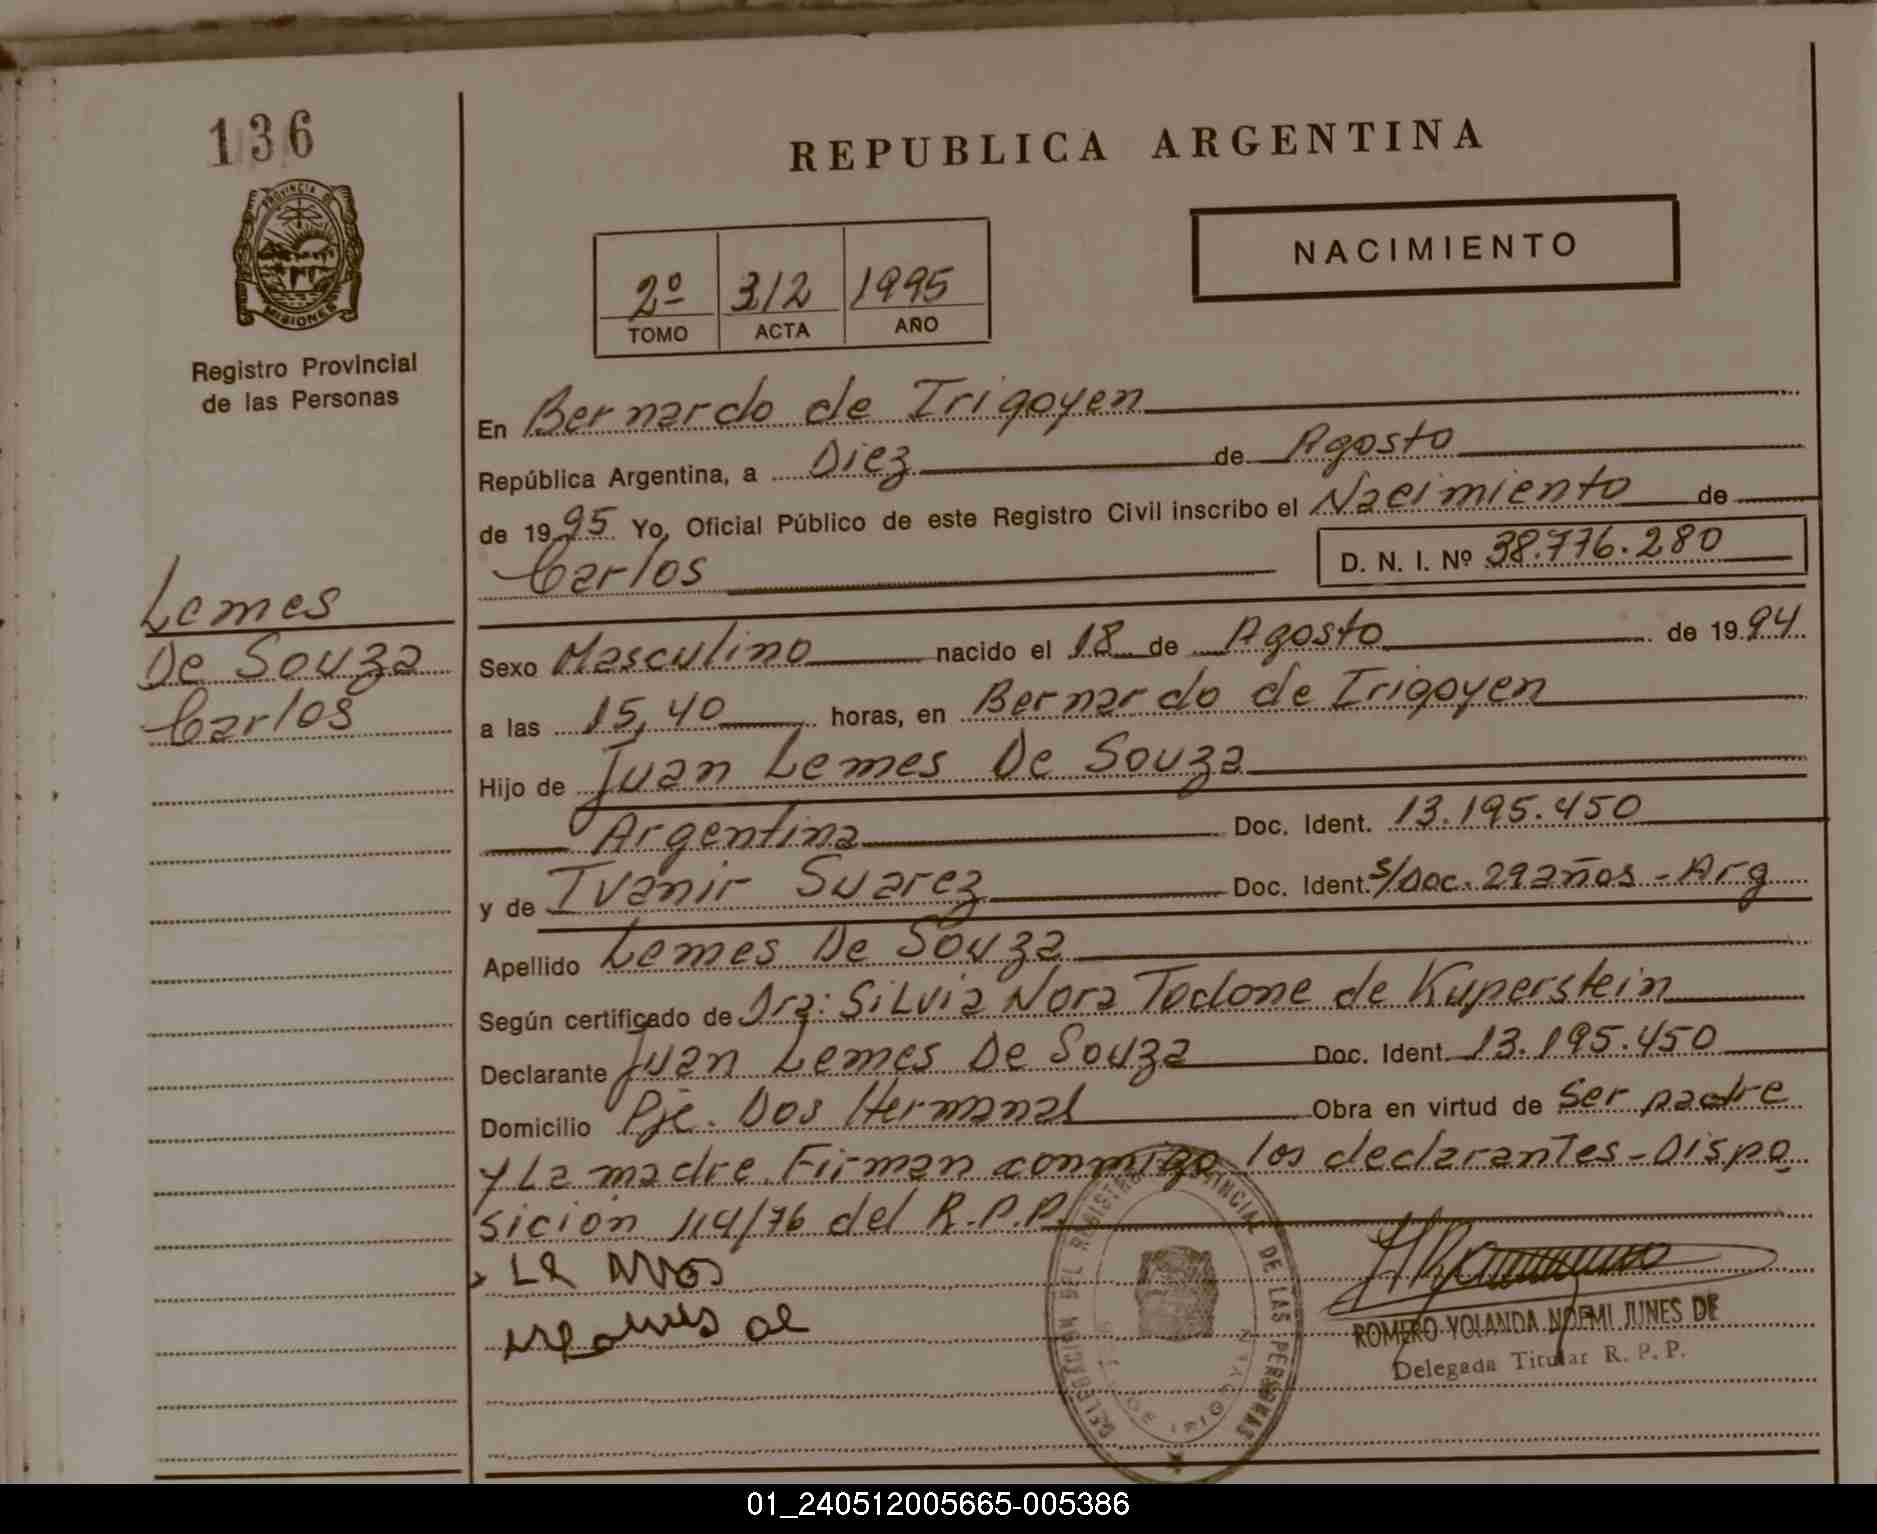 136
PROVINCIA DE
MISIONES
Registro Provincial
de las Personas
Lemes
De Souza
Carlos
REPUBLICA ARGENTINA
NACIMIENTO
2º 312 1995
TOMO ACTA AÑO
En Bernardo de Irigoyen
República Argentina, a Diez de Agosto
de 1995 Yo, Oficial Público de este Registro Civil inscribo el Nacimiento de
Carlos D. N. I. Nº 38.776.280
Sexo Masculino nacido el 18 de Agosto de 1994
a las 15,40 horas, en Bernardo de Irigoyen
Hijo de Juan Lemes De Souza
Argentina Doc. Ident. 13.195.450
y de Ivanir Suarez Doc. Ident. s/Doc. 29 años - Arg
Apellido Lemes De Souza
Según certificado de Dra: Silvia Nora Todone de Kuperstein
Declarante Juan Lemes De Souza Doc. Ident. 13.195.450
Domicilio Pje. Dos Hermanas Obra en virtud de Ser padre
y La madre. Firman conmigo los declarantes - Dispo
sición 114/76 del R.P.P.
DELEGACION DEL REGISTRO PROVINCIAL DE LAS PERSONAS
DE IRIGOYEN
ROMERO YOLANDA NOEMI JUNES DE
Delegada Titular R. P. P.
01_240512005665-005386